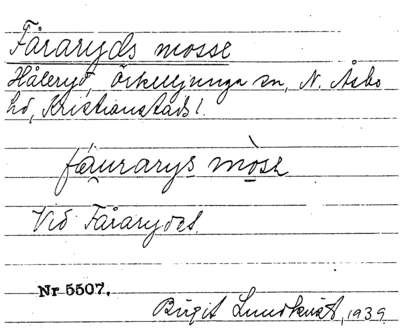 Fåraryds mosse
Håleryd, Örkelljunga sn, N. Åsbo
hd, Kristianstads l.
fáurarys mòse
Vid Fårarydet.
Nr 5507.
Birgit Lundkvist, 1939